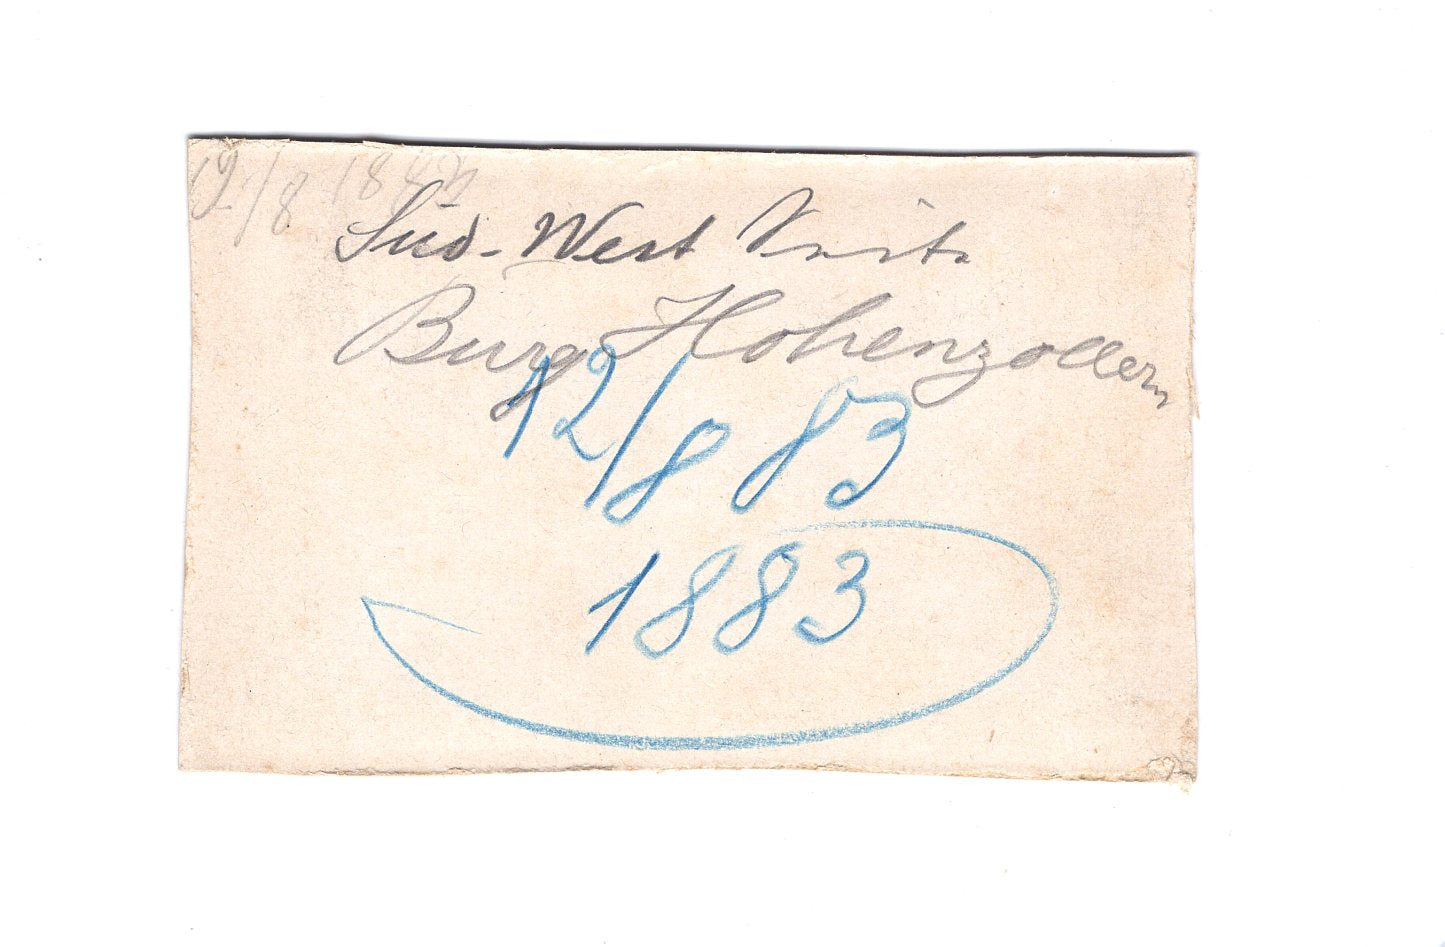 12/8 188
Süd-West
Burg Hohenzollern
12/8 83
1883